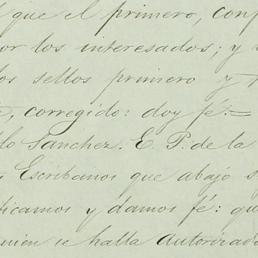 que el primero, con
por los interesados; y
los sellos primero y
corregido: doy fé.=
lo Sanchez. E. P. de la
Escribanos que abajo
ficamos y damos fé: que
quien se halla autorizado